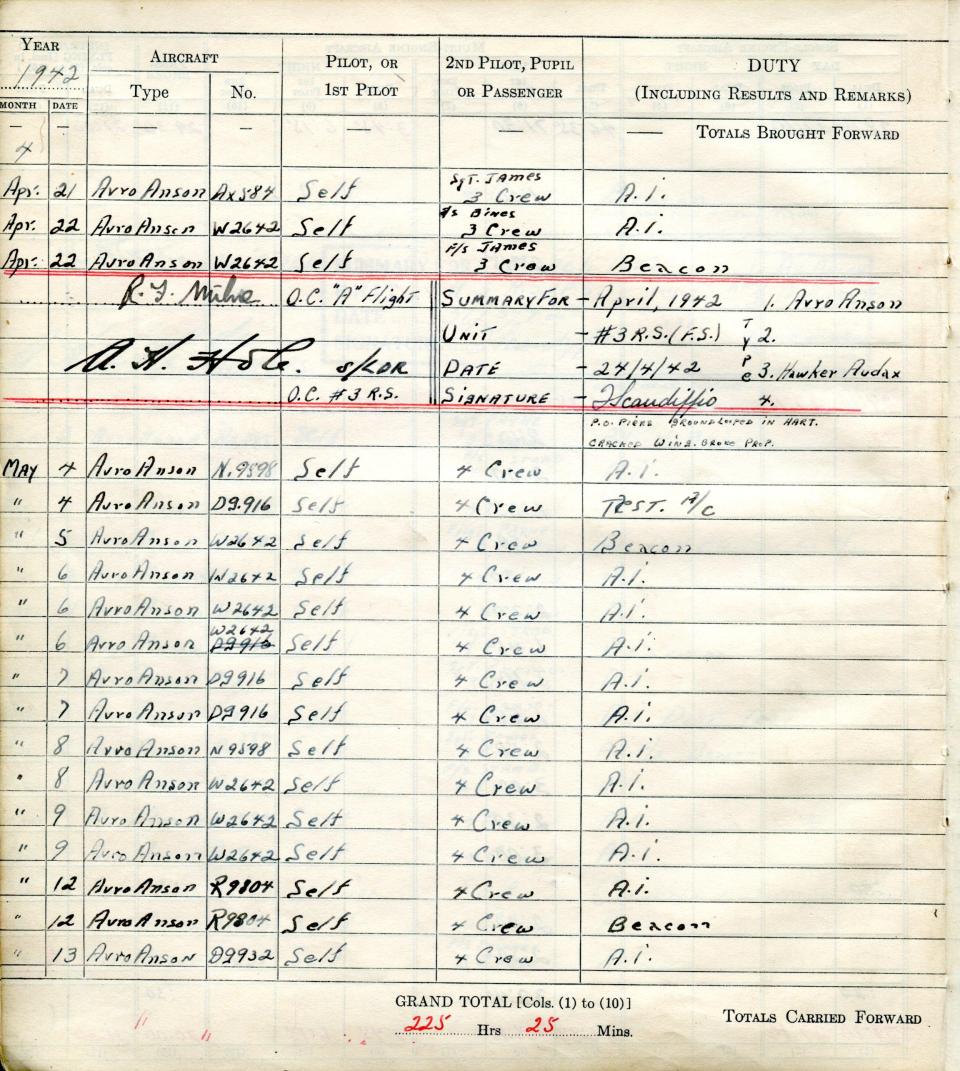 YEAR AIRCRAFT PILOT, OR 2ND PILOT, PUPIL DUTY
1942 Type No. 1ST PILOT OR PASSENGER (INCLUDING RESULTS AND REMARKS)
MONTH DATE
— — — — — — TOTALS BROUGHT FORWARD
4
Apr. 21 Avro Anson Ax584 Self Sgt. James 3 Crew A.i.
Apr. 22 Avro Anson W2642 Self Bines 3 Crew A.i.
Apr. 22 Avro Anson W2642 Self F/s James 3 Crew Beacon
O.C. "A" Flight SUMMARY FOR - April, 1942 1. Avro Anson
UNIT - #3 R.S. (F.S.) Type 2.
A. H. Hole. S/LDR DATE - 24/4/42 3. Hawker Audax
O.C. #3 R.S. SIGNATURE - Iscandiffio 4.
P.O. PIERS GROUNDLOOPED IN HART.
CRACKED WING. BROKE PROP.
MAY 4 Avro Anson N.9598 Self 4 Crew A.i.
" 4 Avro Anson D9.916 Self 4 Crew TEST. A/C
" 5 Avro Anson W2642 Self 4 Crew Beacon
" 6 Avro Anson W2642 Self 4 Crew A.i.
" 6 Avro Anson W2642 Self 4 Crew A.i.
W2642
" 6 Avro Anson D9916 Self 4 Crew A.i.
" 7 Avro Anson D9916 Self 4 Crew A.i.
" 7 Avro Anson D9916 Self 4 Crew A.i.
" 8 Avro Anson N9598 Self 4 Crew A.i.
" 8 Avro Anson W2642 Self 4 Crew A.i.
" 9 Avro Anson W2642 Self 4 Crew A.i.
" 9 Avro Anson W2642 Self 4 Crew A.i.
" 12 Avro Anson R9804 Self 4 Crew A.i.
" 12 Avro Anson R9804 Self 4 Crew Beacon
" 13 Avro Anson D9932 Self 4 Crew A.i.
GRAND TOTAL [Cols. (1) to (10)]
225 Hrs 25 Mins. TOTALS CARRIED FORWARD